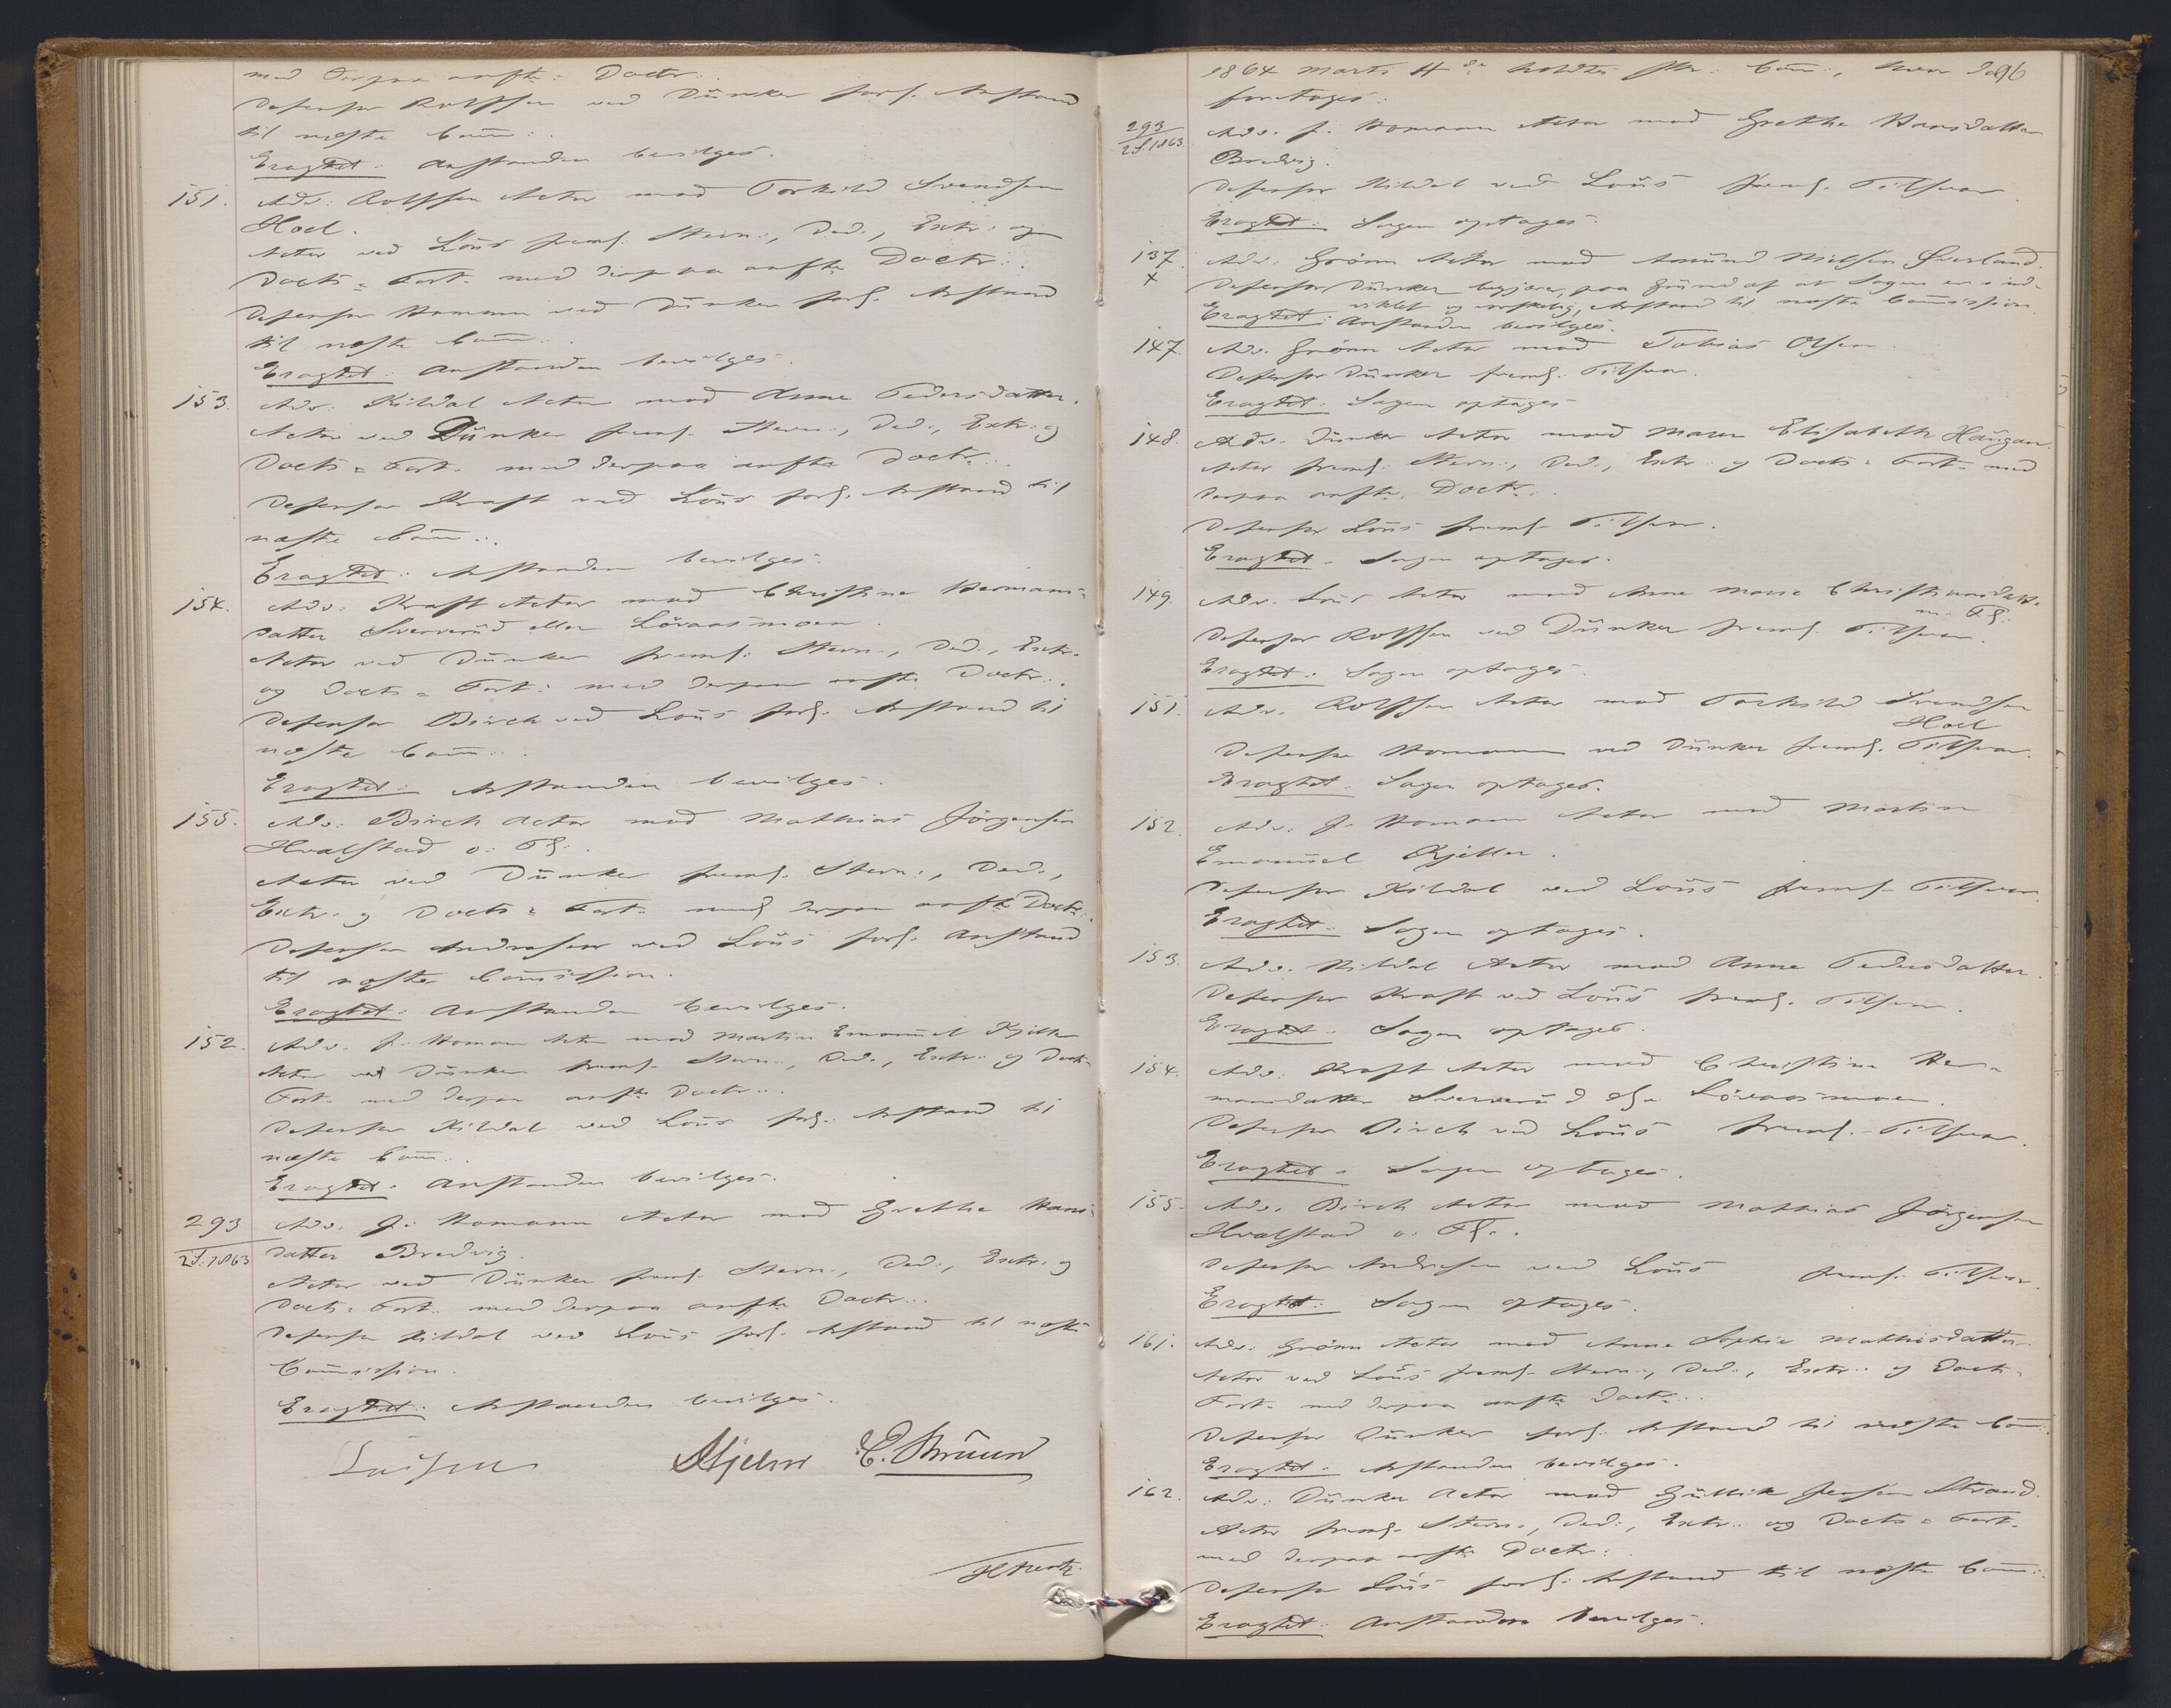 med derpaa anfte: Doctr:.
Defensor Rolffsen ved Dünker forl. Anstand
til næste Com̄:.
Eragtet: Anstanden bevilges.
151. Adv: Rolffsen Actor mod Torkild Svendsen
Hoel.
Actor ved Löüs freml. Stevn:, Ded:, Extr: og
Docts = Fort. med derpaa anfte Doctr:.
Defensor Homann ved Dünker forl. Anstand
til næste Com̄:.
Eragtet: Anstanden bevilges.
153. Adv: Kildal Actor mod Anne Pedersdatter.
Actor ved Dünker freml. Stevn:, Ded:, Extr: og
Docts = Fort. med derpaa anfte Doctr:.
Defensor Kraft ved Löüs forl. Anstand til
næste Com̄:.
Eragtet: Anstanden bevilges.
154. Adv: Kraft Actor mod Christine Hermans=
datter Sververüd eller Lövaasmoen.
Actor ved Dünker freml: Stevn:, Ded:, Extr.
og Docts = Fort: med derpaa anfte Doctr:.
Defensor Birch ved Löüs forl. Anstand til
næste Com̄:.
Eragtet: Anstanden bevilges.
155. Adv: Birch Actor mod Mathias Jörgensen
Hvalstad o: Fl:.
Actor ved Dünker freml. Stevn:, Ded:,
Extr. og Docts = Fort: med derpaa anfte Doctr:.
Defensor Andresen ved Löüs forl. Anstand
til næste Com̄ission.
Eragtet: Anstanden bevilges.
152. Adv. J. Homann Actor mod Martin Emanüel Kjeller
Actor ved Dünker freml. Stevn:, Ded:, Extr: og Docts=
Fort. med derpaa anfte Doctr:.
Defensor Kildal ved Löüs forl. Anstand til
næste Com̄:.
Eragtet. Anstanden bevilges.
293 Adv. J. Homann Actor mod Grethe Hans=
2S. 1863 datter Bredvig.
Actor ved Dünker freml. Stevn:, Ded:, Extr. og
Docts = Fort. med derpaa anfte Doctr:.
Defensor Kildal ved Löüs forl. Anstand til næste
Com̄ission.
Eragtet: Anstanden bevilges.
Hjelm C. Brüün
1864 Marts 4de holdtes Com̄:, hvor da 96
foretoges:
293 Adv. J. Homann Actor mod Grethe Hansdatter
2S. 1863 Bredvig.
Defensor Kildal ved Löüs freml. Tilsvar.
Eragtet: Sagen optages.
137. Adv. Grönn Actor mod Amünd Nielsen Överland.
x Defensor Dünker begjærer, paa Gründ af at Sagen er ind=
viklet og vanskelig, Anstand til næste Com̄ission.
Eragtet: Anstanden bevilges.
147. Adv. Grönn Actor mod Tobias Olsen.
Defensor Dünker freml. Tilsvar.
Eragtet. Sagen optages
148. Adv. Dünker Actor mod Maren Elisabeth Haügan.
Actor freml. Stevn:, Ded:, Extr: og Docts = Fort. med
derpaa anfte. Doctr:.
Defensor Löüs freml. Tilsvar.
Eragtet. Sagen optages.
149. Adv. Löüs Actor mod Anne Marie Christiansdatter
m. Fl.
Defensor Rolffsen ved Dünker freml. Tilsvar.
Eragtet. Sagen optages.
151. Adv. Rolffsen Actor mod Torkild Svendsen
Hoel
Defensor Homann ved Dünker freml. Tilsvar.
Eragtet. Sagen optages.
152. Adv: J. Homann Actor mod Martin
Emanüel Kjeller.
Defensor Kildal ved Löüs freml. Tilsvar.
Eragtet. Sagen optages.
153. Adv. Kildal Actor mod Anne Pedersdatter.
Defensor Kraft ved Löüs freml. Tilsvar.
Eragtet. Sagen optages.
154. Adv: Kraft Actor mod Christine Her=
mansdatter Sververüd elr Lövaasmoen.
Defensor Birch ved Löüs freml. Tilsvar.
Eragtet. Sagen optages.
155. Adv. Birch Actor mod Mathias Jörgensen
Hvalstad o. Fl:.
Defensor Andresen ved Löüs freml. Tilsvar.
Eragtet: Sagen optages.
161. Adv. Grönn Actor mod Anne Sophie Mathisdatter.
Actor ved Löüs freml. Stevn:, Ded:, Extr: og Docts=
Fort. med derpaa anfte Doctr:.
Defensor Dünker forl. Anstand til næste Com̄:.
Eragtet. Anstanden bevilges.
162. Adv: Dünker Actor mod Güllik Jensen Strand.
Actor freml. Stevn:, Ded:, Extr: og Docts = Fort.
med derpaa anfte Doctr:.
Defensor Löüs forl. Anstand til næste Com̄:.
Eragtet: Anstanden bevilges.